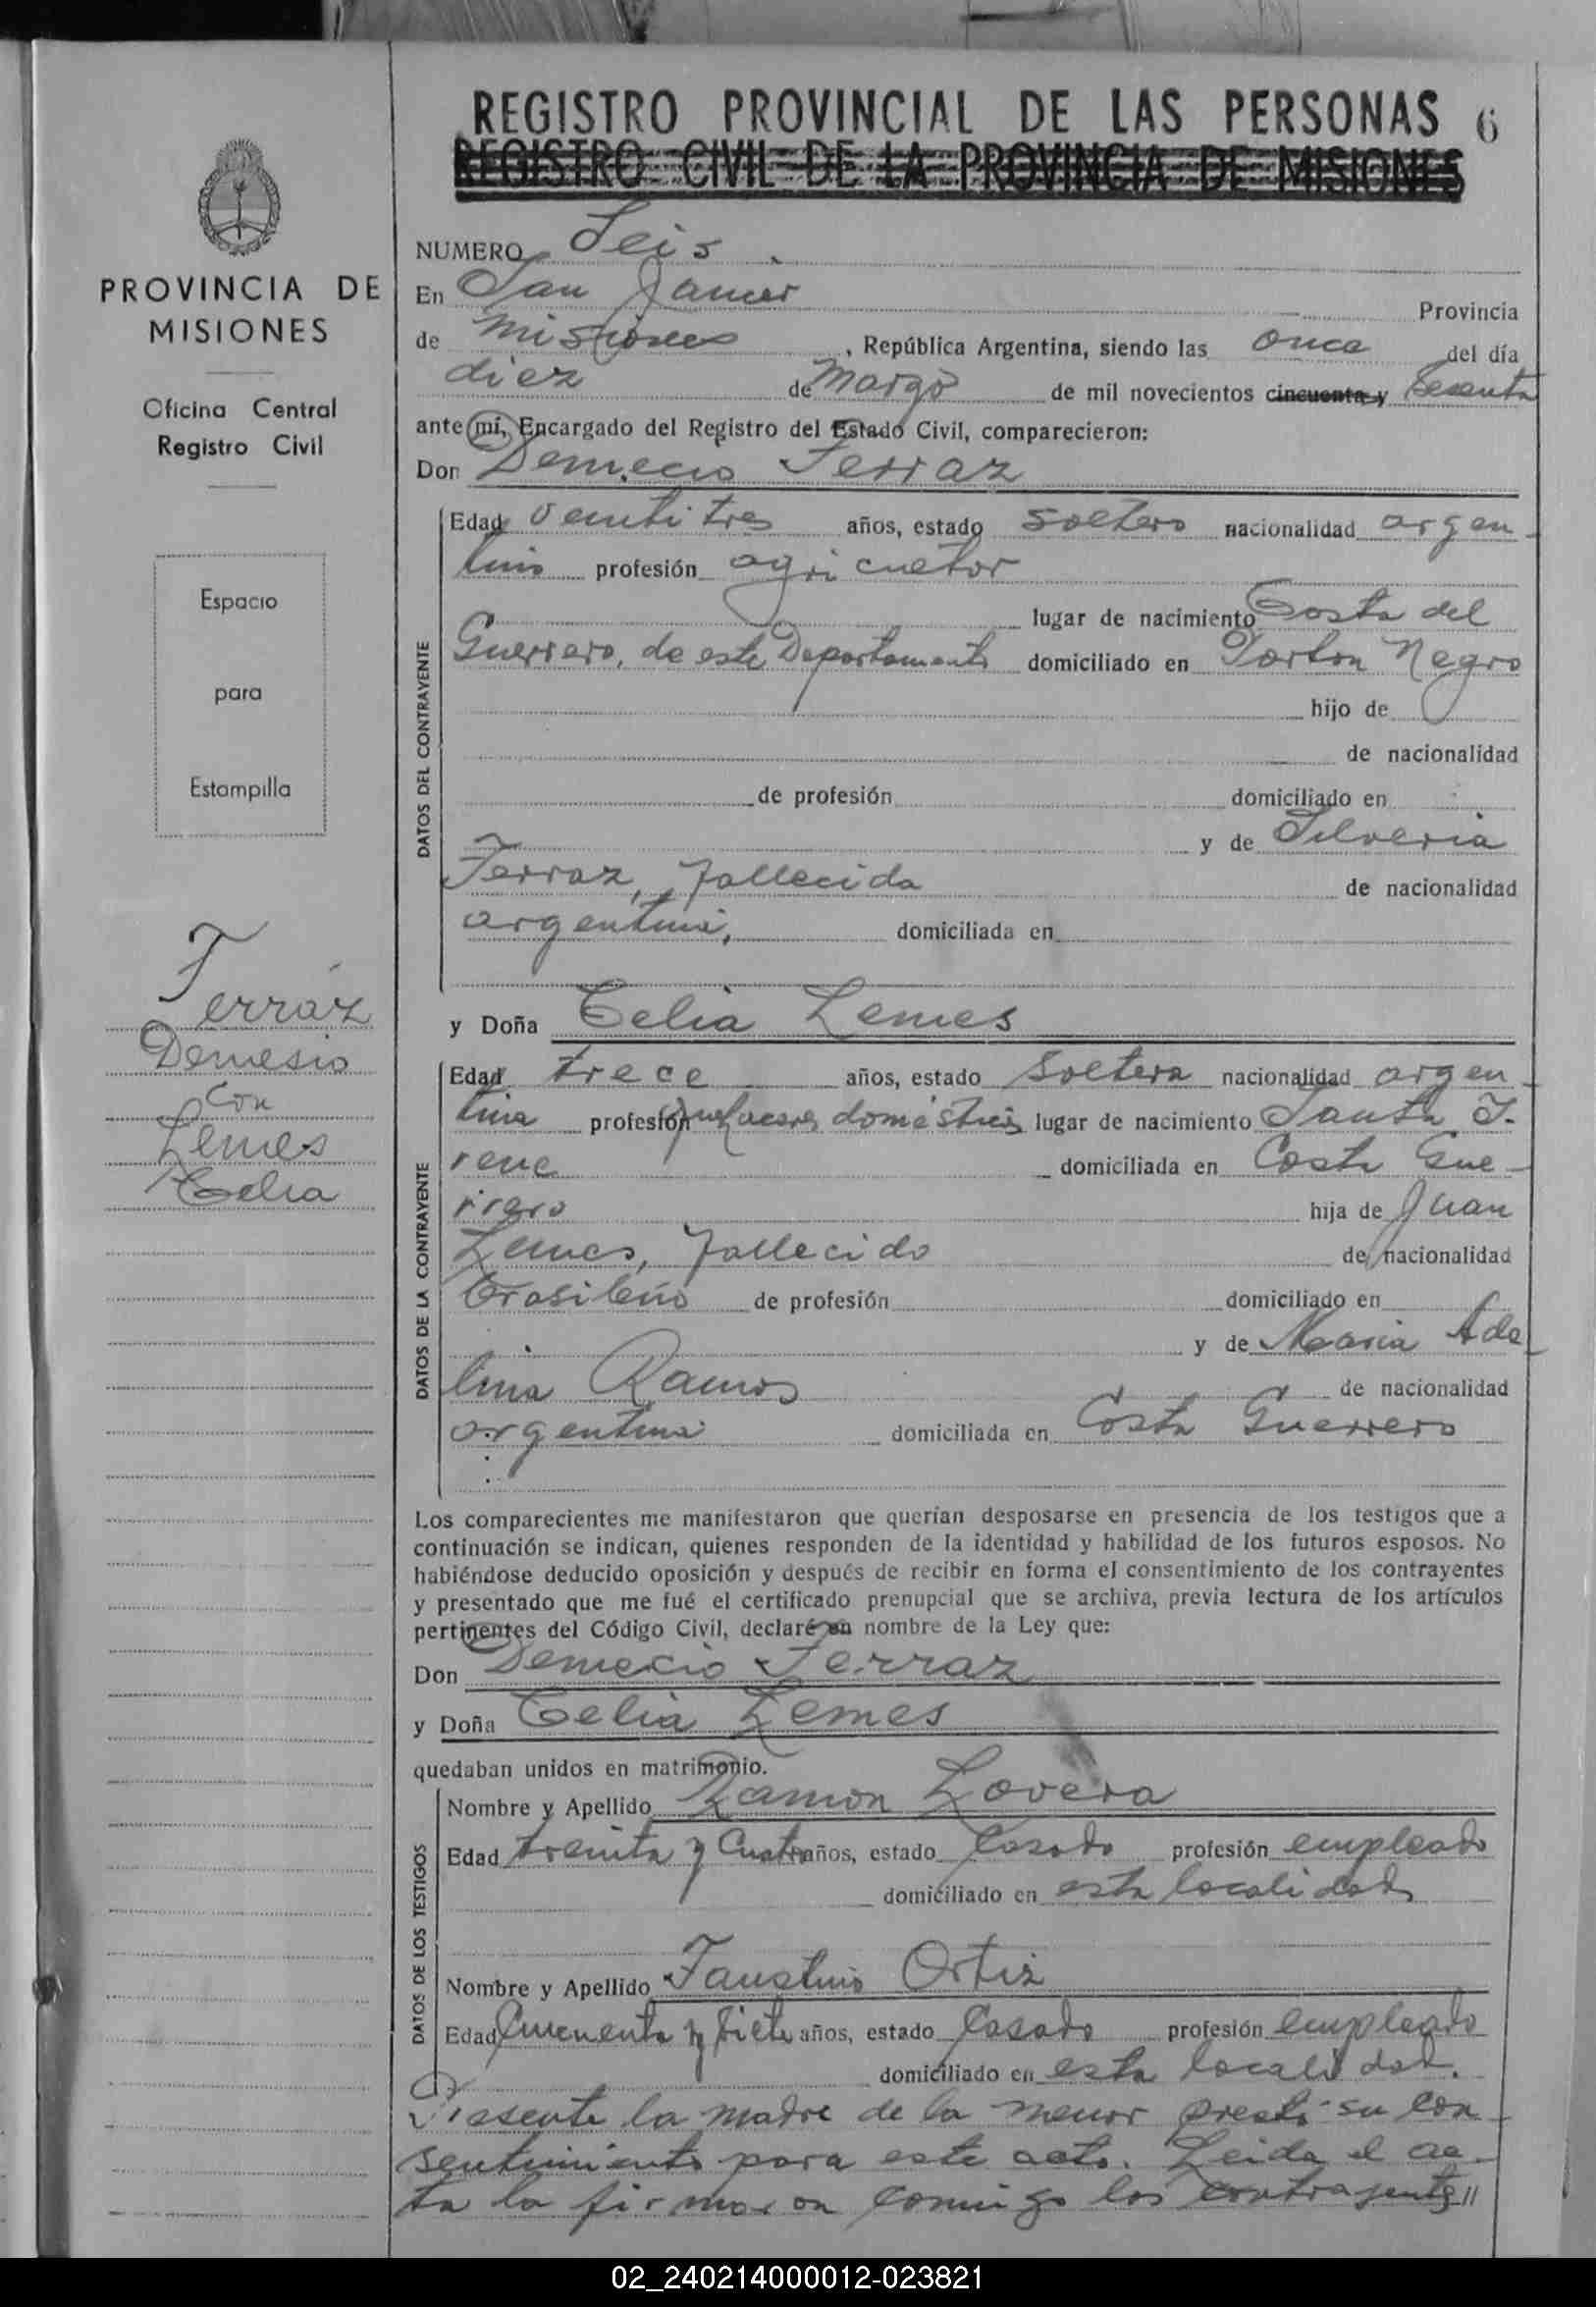 REGISTRO PROVINCIAL DE LAS PERSONAS 6
REGISTRO CIVIL DE LA PROVINCIA DE MISIONES
PROVINCIA DE
MISIONES
Oficina Central
Registro Civil
Espacio
para
Estampilla
Ferráz
Demesio
Con
Lemes
Celia
NUMERO Seis
En San Javier Provincia
de Misiones, República Argentina, siendo las once del día
diez de Marzo de mil novecientos cincuenta y Sesenta
ante mí, Encargado del Registro del Estado Civil, comparecieron:
Don Demecio Ferraz
DATOS DEL CONTRAYENTE
Edad veintitres años, estado soltero nacionalidad argen-
tino profesión agricultor
lugar de nacimiento Costa del
Guerrero, de este Departamento domiciliado en Porton Negro
hijo de
de nacionalidad
de profesión domiciliado en
y de Silveria
Ferraz, fallecida de nacionalidad
argentina, domiciliada en
y Doña Celia Lemes
DATOS DE LA CONTRAYENTE
Edad trece años, estado soltera nacionalidad argen-
tina profesión quehaceres domésticos lugar de nacimiento Santa I-
rene domiciliada en Costa Gue-
rrero hija de Juan
Lemes, fallecido de nacionalidad
brasileño de profesión domiciliado en
y de Maria Ade-
lina Ramos de nacionalidad
argentina domiciliada en Costa Guerrero
Los comparecientes me manifestaron que querían desposarse en presencia de los testigos que a
continuación se indican, quienes responden de la identidad y habilidad de los futuros esposos. No
habiéndose deducido oposición y después de recibir en forma el consentimiento de los contrayentes
y presentado que me fué el certificado prenupcial que se archiva, previa lectura de los artículos
pertinentes del Código Civil, declaré en nombre de la Ley que:
Don Demecio Ferraz
y Doña Celia Lemes
quedaban unidos en matrimonio.
DATOS DE LOS TESTIGOS
Nombre y Apellido Ramon Lovera
Edad treinta y Cuatro años, estado Casado profesión empleado
domiciliado en esta localidad
Nombre y Apellido Faustino Ortiz
Edad Cincuenta y siete años, estado Casado profesión empleado
domiciliado en esta localidad.
Presente la madre de la menor prestó su con-
sentimiento para este acto. Leida el ac-
ta la firmaron conmigo los contrayentes //
02_240214000012-023821